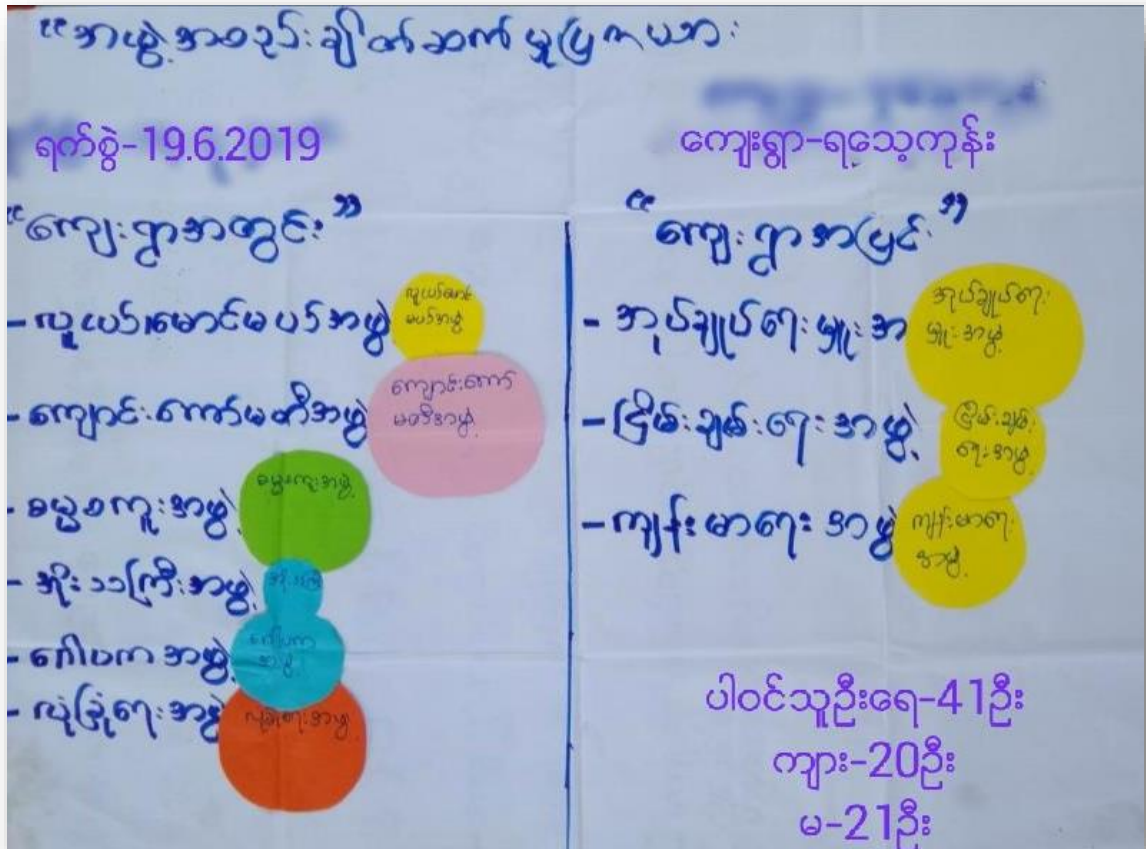 "အဖွဲ့အစည်းချိတ်ဆက်မှုပြကားချပ်
ရက်စွဲ-19.6.2019
ကျေးရွာ-ရသေ့ကုန်း
"ကျေးရွာအတွင်း"
-လူငယ်မောင်မယ်အဖွဲ့
လူငယ်မောင်
မယ်အဖွဲ့
-ကျောင်းကော်မတီအဖွဲ့
ကျောင်းကော်
မတီအဖွဲ့
-ဓမ္မစကူးအဖွဲ့
ဓမ္မစကူးအဖွဲ့
-အိုးသည်ကြီးအဖွဲ့
-ဂေါပကအဖွဲ့
ဂေါပက
အဖွဲ့
-လုံခြုံရေးအဖွဲ့
လုံခြုံရေးအဖွဲ့
"ကျေးရွာအပြင်"
-အုပ်ချုပ်ရေးမှူးအ
အုပ်ချုပ်ရေး
မှူးအဖွဲ့
-ငြိမ်းချမ်းရေးအဖွဲ့
ငြိမ်းချမ်း
ရေးအဖွဲ့
-ကျန်းမာရေးအဖွဲ့
ကျန်းမာရေး
အဖွဲ့
ပါဝင်သူဦးရေ-41ဦး
ကျား-20ဦး
မ-21ဦး